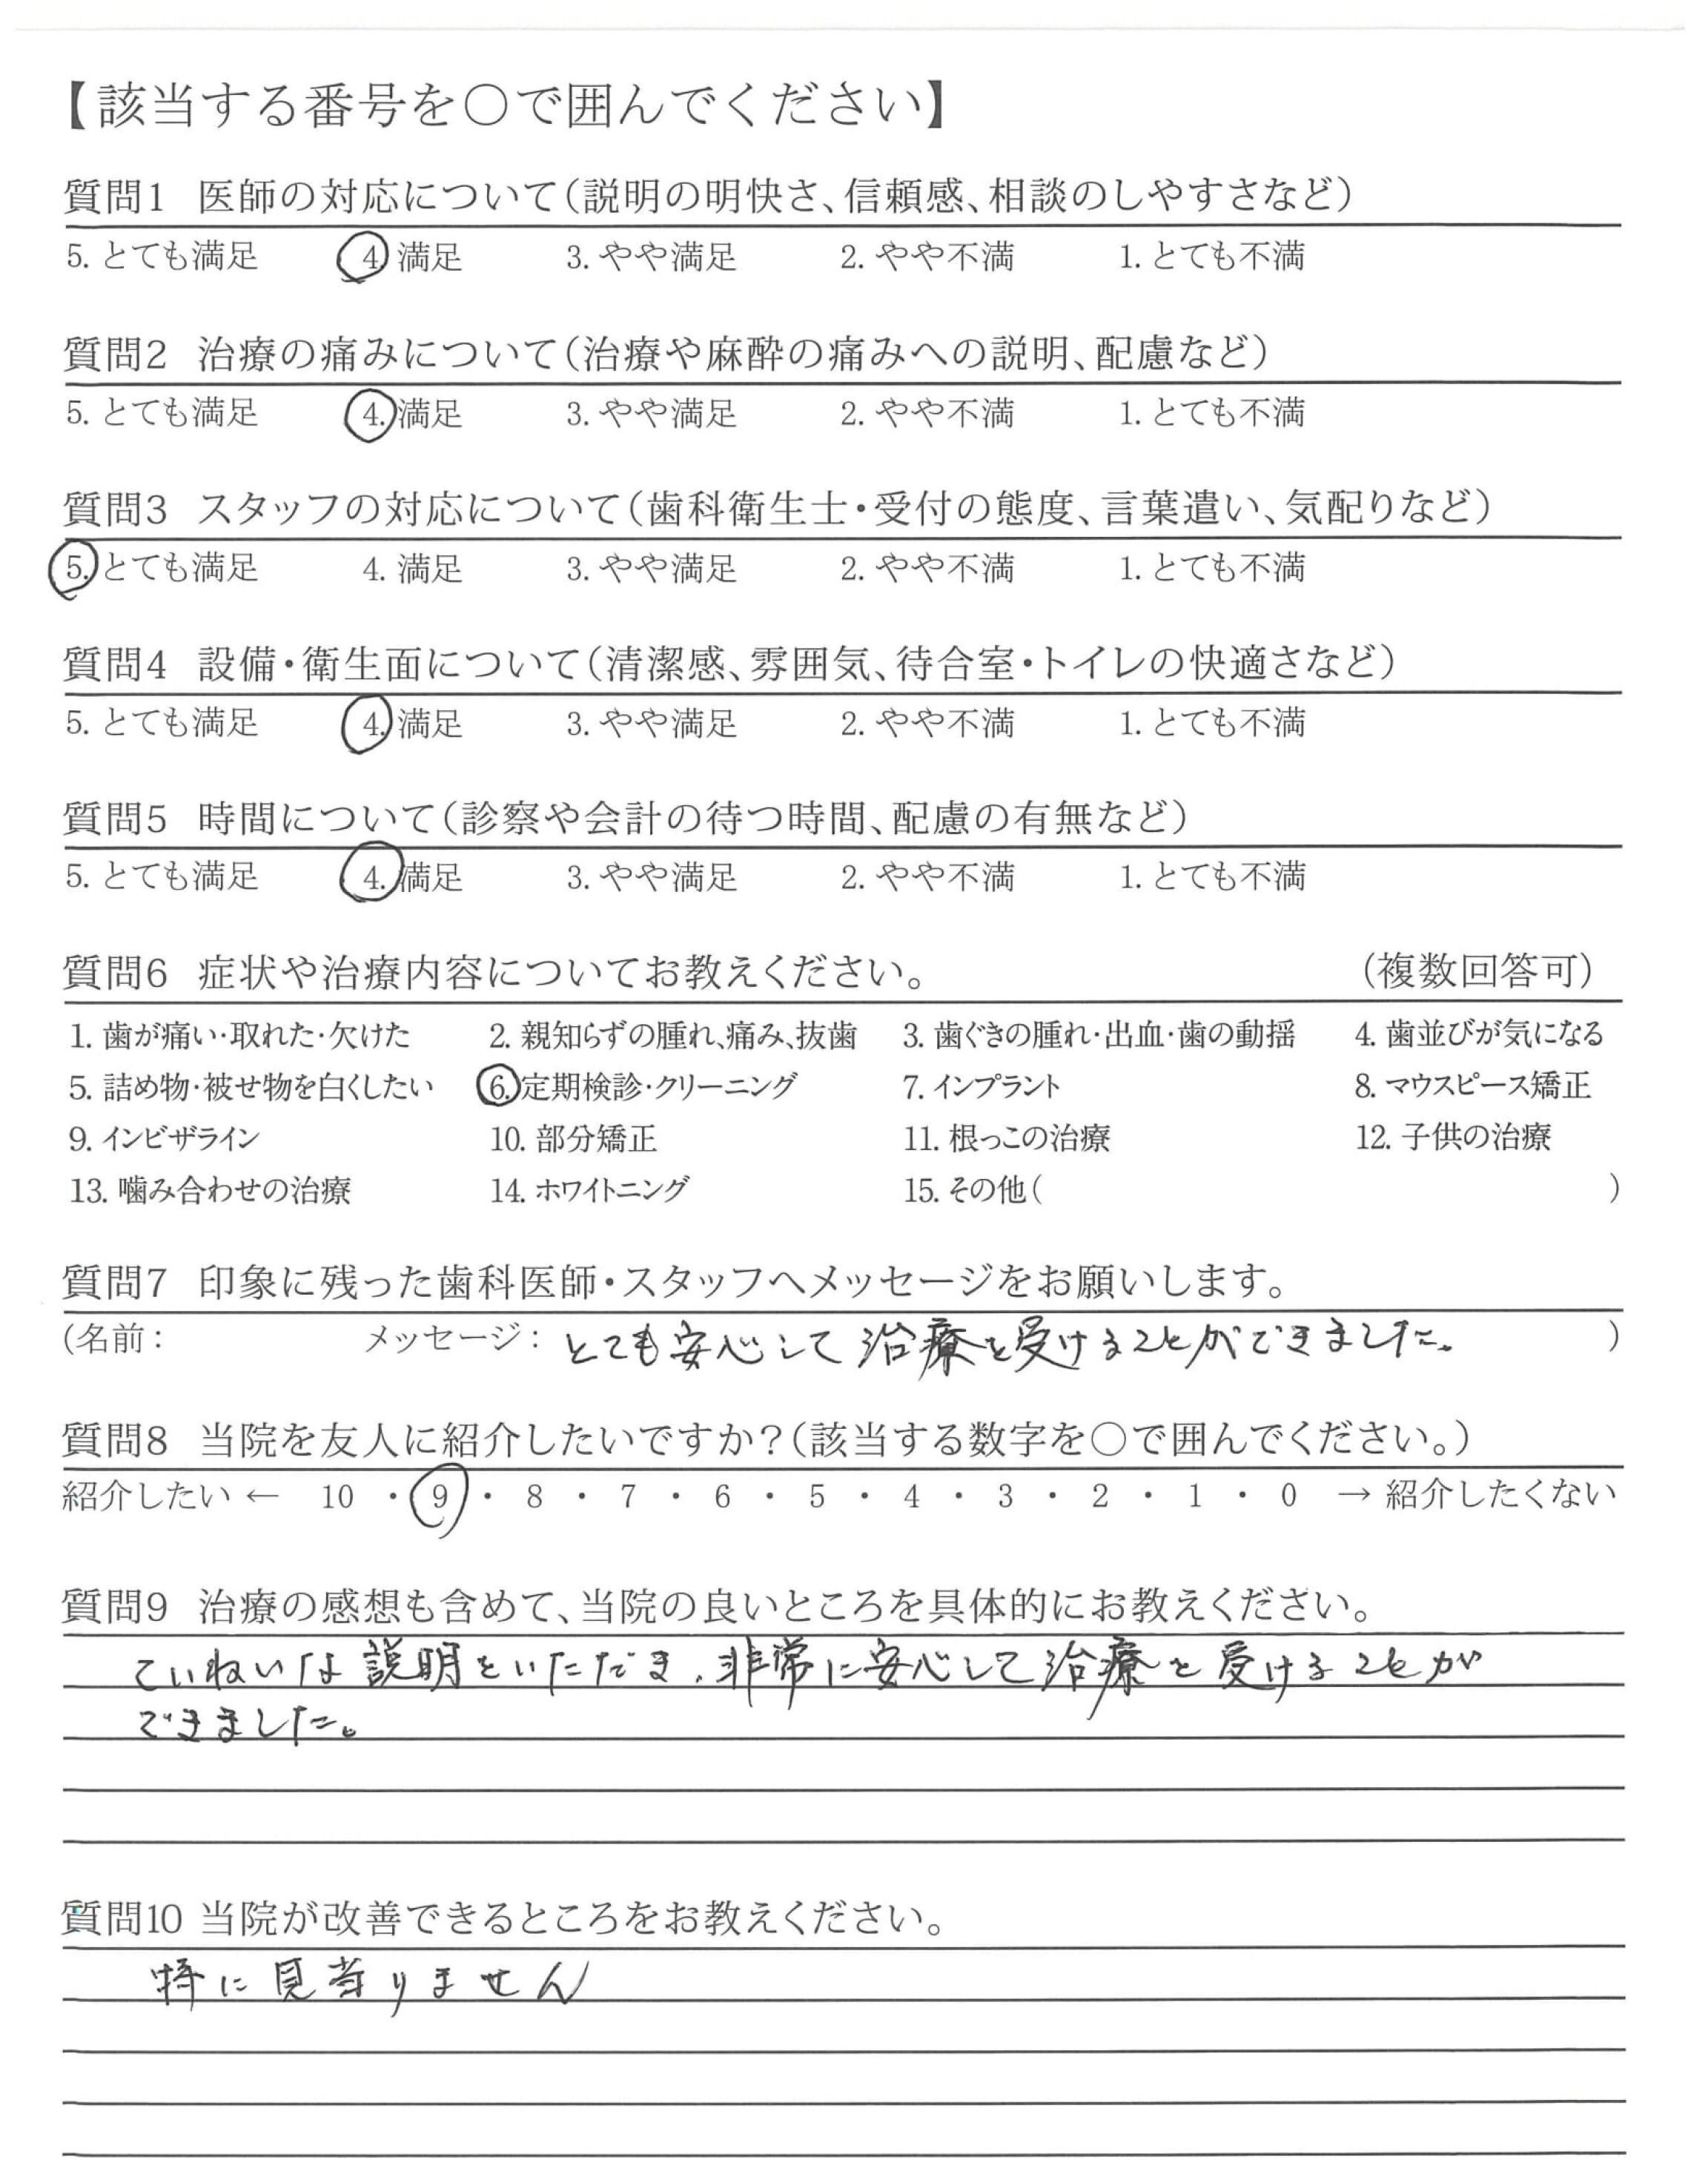 【該当する番号を○で囲んでください】
質問1 医師の対応について(説明の明快さ、信頼感、相談のしやすさなど)
5. とても満足 4. 満足 3. やや満足 2. やや不満 1. とても不満
質問2 治療の痛みについて(治療や麻酔の痛みへの説明、配慮など)
5. とても満足 4. 満足 3. やや満足 2. やや不満 1. とても不満
質問3 スタッフの対応について(歯科衛生士・受付の態度、言葉遣い、気配りなど)
5. とても満足 4. 満足 3. やや満足 2. やや不満 1. とても不満
質問4 設備・衛生面について(清潔感、雰囲気、待合室・トイレの快適さなど)
5. とても満足 4. 満足 3. やや満足 2. やや不満 1. とても不満
質問5 時間について(診察や会計の待つ時間、配慮の有無など)
5. とても満足 4. 満足 3. やや満足 2. やや不満 1. とても不満
質問6 症状や治療内容についてお教えください。 (複数回答可)
1. 歯が痛い・取れた・欠けた 2. 親知らずの腫れ、痛み、抜歯 3. 歯ぐきの腫れ・出血・歯の動揺 4. 歯並びが気になる
5. 詰め物・被せ物を白くしたい 6. 定期検診・クリーニング 7. インプラント 8. マウスピース矯正
9. インビザライン 10. 部分矯正 11. 根っこの治療 12. 子供の治療
13. 噛み合わせの治療 14. ホワイトニング 15. その他( )
質問7 印象に残った歯科医師・スタッフへメッセージをお願いします。
(名前: メッセージ: とても安心して治療を受けることができました。 )
質問8 当院を友人に紹介したいですか?(該当する数字を○で囲んでください。)
紹介したい ← 10 ・ 9 ・ 8 ・ 7 ・ 6 ・ 5 ・ 4 ・ 3 ・ 2 ・ 1 ・ 0 → 紹介したくない
質問9 治療の感想も含めて、当院の良いところを具体的にお教えください。
ていねいな説明をいただき、非常に安心して治療を受けることが
できました。
質問10 当院が改善できるところをお教えください。
特に見当りません